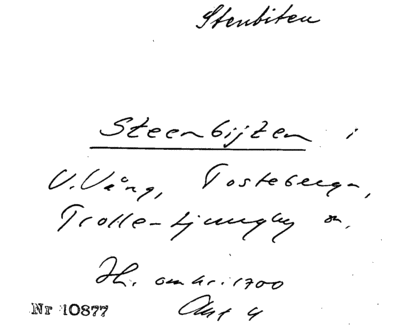 Stenbiten
Steenbijten i
V. Vång, Tosteberga,
Trolle-Ljungby m.
H. omkr. 1700
Nr 10877 Akt 4